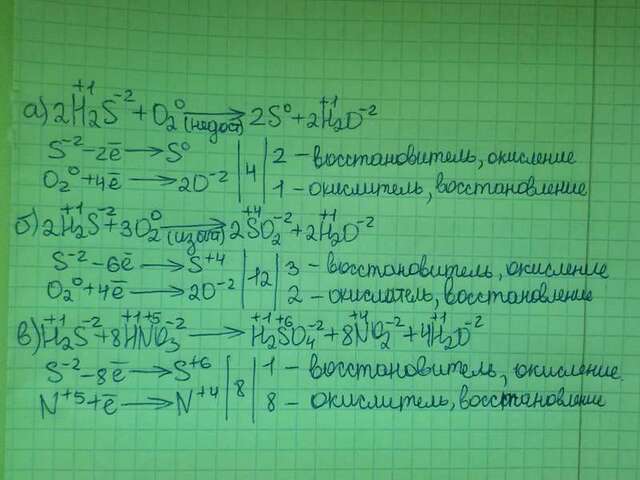 а) 2H₂⁺¹S⁻² + O₂⁰ (недост) → 2S⁰ + 2H₂⁺¹O⁻²
S⁻² - 2ē → S⁰ | 4 | 2 – восстановитель, окисление
O₂⁰ + 4ē → 2O⁻² | 1 – окислитель, восстановление
б) 2H₂⁺¹S⁻² + 3O₂⁰ (избыт) → 2S⁺⁴O₂⁻² + 2H₂⁺¹O⁻²
S⁻² - 6ē → S⁺⁴ | 12 | 3 – восстановитель, окисление
O₂⁰ + 4ē → 2O⁻² | 2 – окислатель, восстановление
в) H₂⁺¹S⁻² + 8H⁺¹N⁺⁵O₃⁻² → H₂⁺¹S⁺⁶O₄⁻² + 8N⁺⁴O₂⁻² + 4H₂⁺¹O⁻²
S⁻² - 8ē → S⁺⁶ | 8 | 1 – восстановитель, окисление.
N⁺⁵ + ē → N⁺⁴ | 8 – окислитель, восстановление